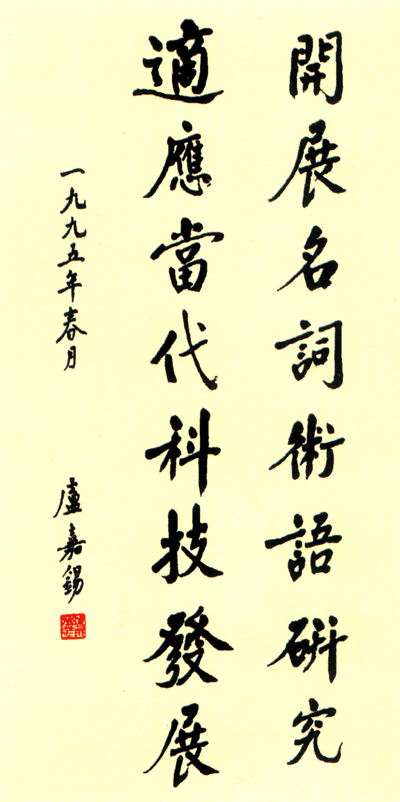 開展名詞術語研究
適應當代科技發展
一九九五年春月
盧嘉錫